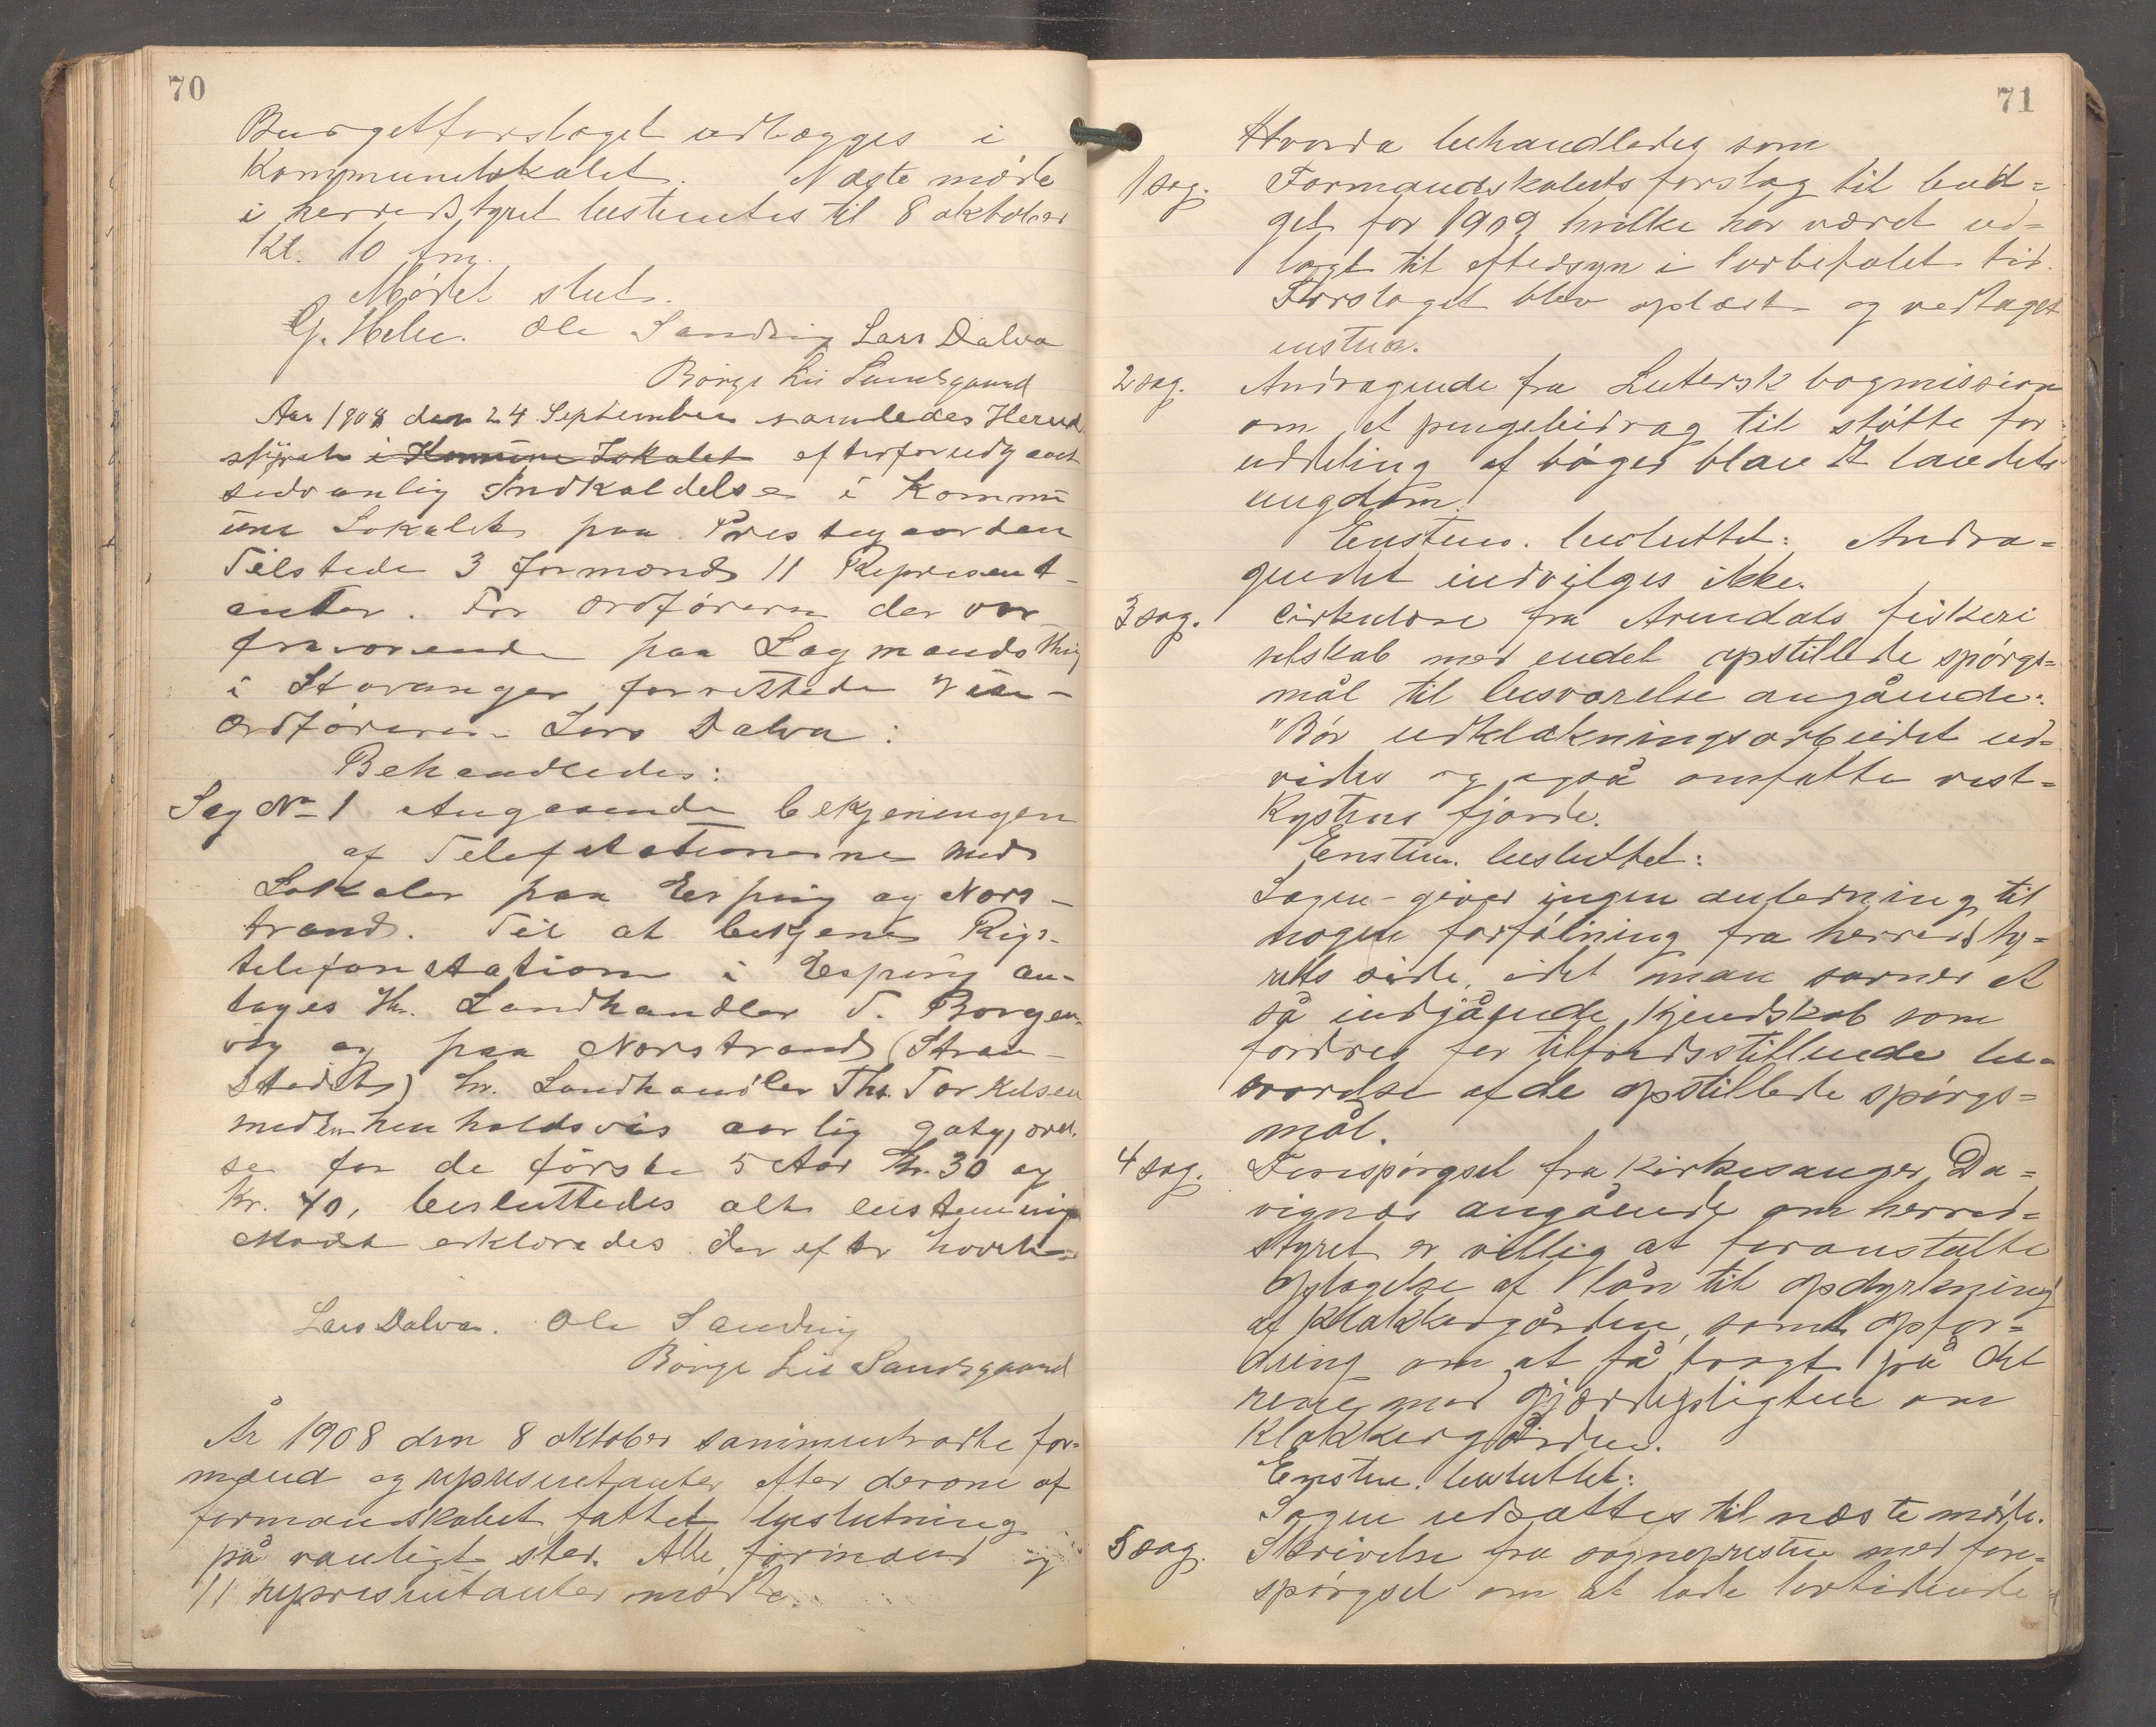 70
Burgetforslaget udlægges i
Kommunelokalet. Næste møde
i herredstyret bestemtes til 8 oktober
Kl. 10 fm.
Mødet slut.
G. Helle. Ole Sandvig Lars Dalva
Börge Lie Sandsgaard
Aar 1908 den 24 September samledes Herred
styret i Komune Lokalet efter forudgaaet
sedvanlig Indkaldelse i Kommu
une Lokalet paa Prestegaarden
Tilstede 3 formænd 11 Represent-
anter. For Ordføreren der var
fraværende paa Lagmandsthing
i Stavanger forrettede Vise-
Ordføreren Lars Dalva:
Behandledes:
Sag No 1 Angaaende bekjeningen
af Telefstationerne med
Lokaler paa Erfjord og Nors-
trand. Til at bekjene Rigs-
telefonstation i Erfjord an-
tages Hr. Landhandler T. Borgen-
vig og paa Norstrand (Stran-
stedet) hr. Landhandler Ths. Torkelsen
med en henholdsvis aarlig gotgjørel-
se for de første 5 Aar Kr. 30 og
Kr. 40, besluttedes alt enstemmig
Mødet erklæredes derefter hævet
Lars Dalva. Ole Sandvig
Börge Lie Sandsgaard
År 1908 den 8 oktober sammentraadte for-
mænd og repræsentanter efter derom af
formandskabet fattet beslutning
på vanligt sted. Alle formænd og
11 repræsentanter mødte.
71
Hvorda behandledes som
1 sag. Formandskabets forslag til bud=
get for 1909 hvilke har været ud=
lagt til eftersyn i lovbefalet tid.
Forslaget blev oplæst og vedtaget
enstem.
2 sag. Andragende fra Lutersk bogmission
om et pengebidrag til støtte for
uddeling af bøger blan Zt landets
ungdom.
Enstem. besluttet: Andra=
gendet indvilges ikke.
3 sag. Cirkulære fra Arendals fiskeri
selskab med endel opstillede spørgs=
mål til besvarelse angående:
"Bør udklækningsarbeidet ud=
vides og også omfatte vest=
kystens fjorde.
Enstem. besluttet:
Sagen giver ingen anledning til
nogen forføining fra herredsty=
rets side, idet man savner et
så indgående kjendskab som
fordres for tilfredsstillende be=
svarelse af de opstillede spørgs=
mål.
4 sag. Forespørgsel fra kirkesanger Da=
vignes angående om herred=
styret er villig at foranstalte
optagelse af lån til opdyrkning
af Klokkergården, samt opfor=
dring om at få bragt på det
rene med gjærdepligten om
Klokkergården.
Enstem. besluttet:
Sagen udsættes til næste møde.
5 sag. Skrivelse fra sognepresten med fore=
spørgsel om at lade